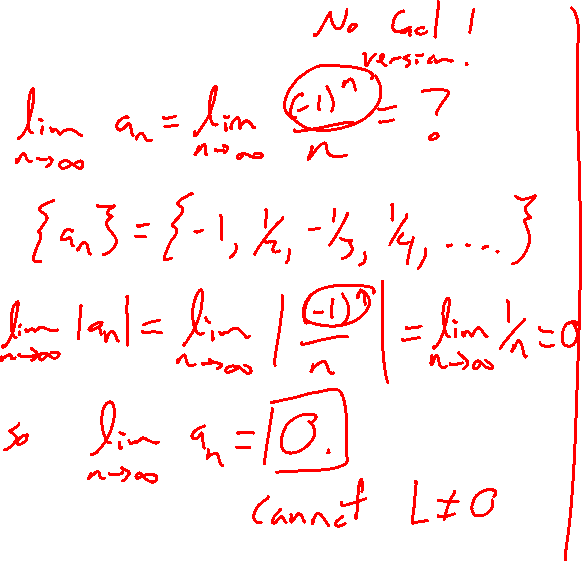 No Cal 1
version.
lim n→∞ aₙ = lim n→∞ (-1)ⁿ/n = ?
{aₙ} = {-1, 1/2, -1/3, 1/4, ....}
lim n→∞ |aₙ| = lim n→∞ |(-1)ⁿ/n| = lim n→∞ 1/n = 0
so lim n→∞ aₙ = 0.
cannot L ≠ 0